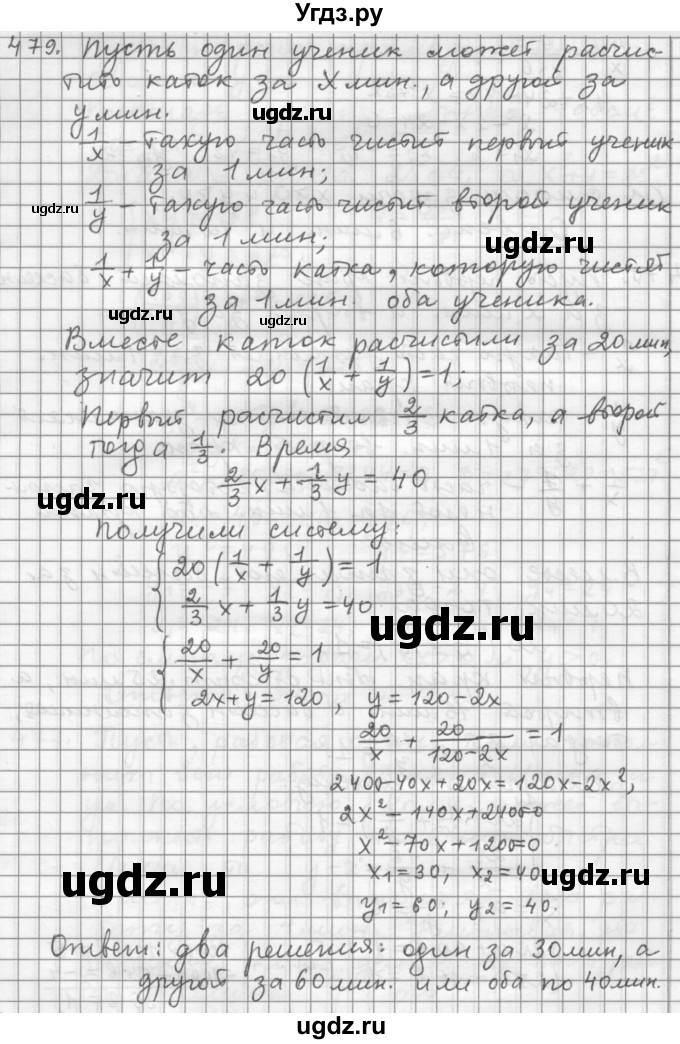 Угдз.ру
479. Пусть один ученик может расчис-
тить каток за x мин., а другой за
y мин.
ugdz.ru
ugdz.ru
1/x – такую часть чистит первый ученик
за 1 мин;
ugdz.ru
1/y – такую часть чистит второй ученик
за 1 мин;
ugdz.ru
1/x + 1/y – часть катка, которую чистят
за 1 мин. оба ученика.
ugdz.ru
ugdz.ru
Вместе каток расчистили за 20 мин,
значит 20 (1/x + 1/y) = 1;
Первый расчистил 2/3 катка, а второй
тогда 1/3. Время
2/3 x + 1/3 y = 40
ugdz.ru
Получили систему:
{ 20 (1/x + 1/y) = 1
2/3 x + 1/3 y = 40
ugdz.ru
{ 20/x + 20/y = 1
2x + y = 120, y = 120 – 2x
20/x + 20/(120 – 2x) = 1
2400 – 40x + 20x = 120x – 2x²,
2x² – 140x + 2400 = 0
x² – 70x + 1200 = 0
x₁ = 30, x₂ = 40
ugdz.ru
ugdz.ru
y₁ = 60; y₂ = 40.
Ответ: два решения: один за 30 мин, а
другой за 60 мин. или оба по 40 мин.
ugdz.ru